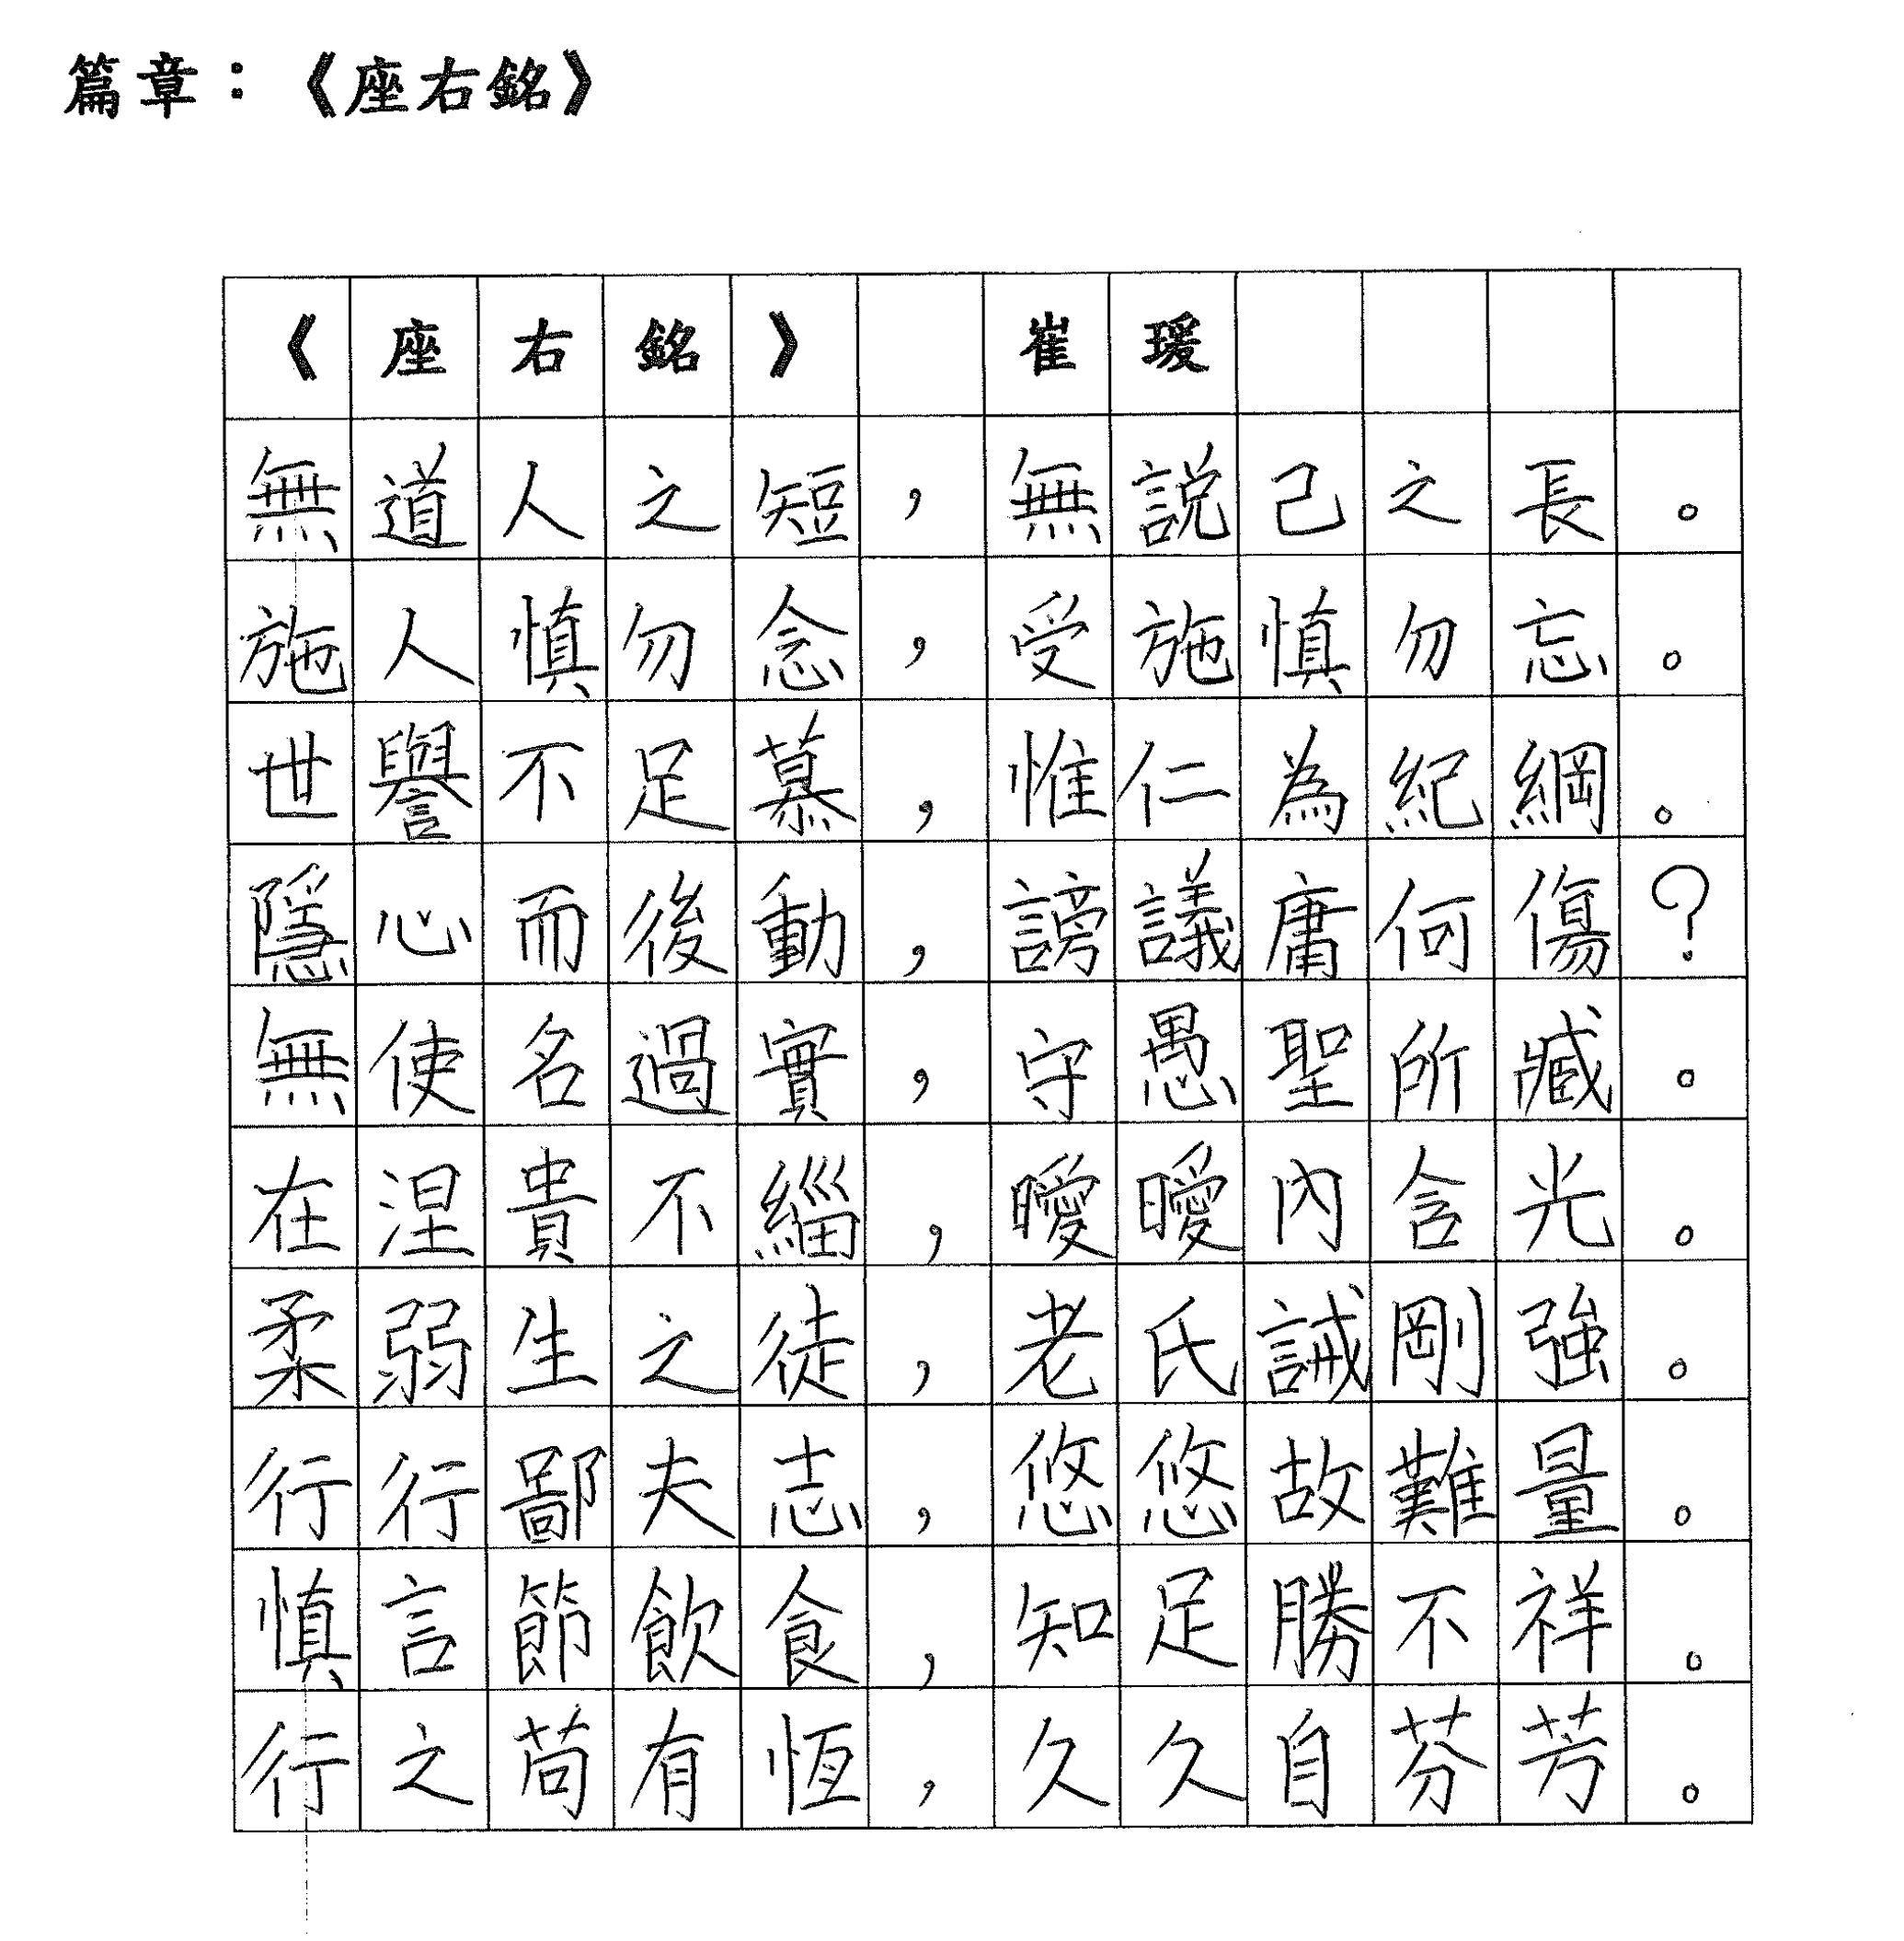 篇章：《座右銘》
《座右銘》 崔瑗
無道人之短，無説己之長。
施人慎勿念，受施慎勿忘。
世譽不足慕，惟仁為紀綱。
隱心而後動，謗議庸何傷？
無使名過實，守愚聖所臧。
在涅貴不緇，曖曖內含光。
柔弱生之徒，老氏誡剛強。
行行鄙夫志，悠悠故難量。
慎言節飲食，知足勝不祥。
行之苟有恆，久久自芬芳。